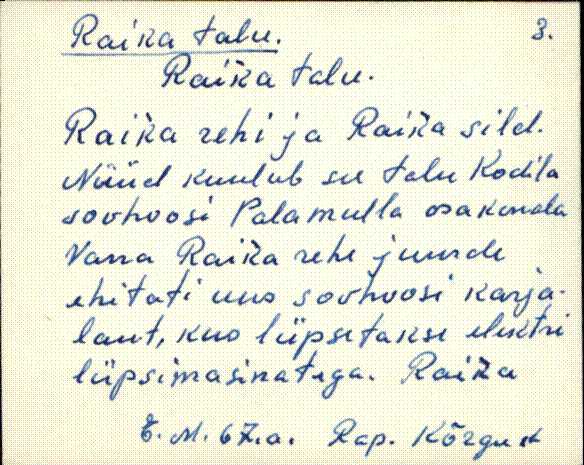 Raika talu. 3.
Raika talu.
Raika rehi ja Raika sild.
Nüüd kuulub see talu Kodila
sovhoosi Palamulla osakonda
Vana Raika rehe juurde
ehitati uus sovhoosi karja-
laut, kus lüpsetakse elektri
lüpsimasinatega. Raika
E. M. 67.a. Rap. Kõrgust